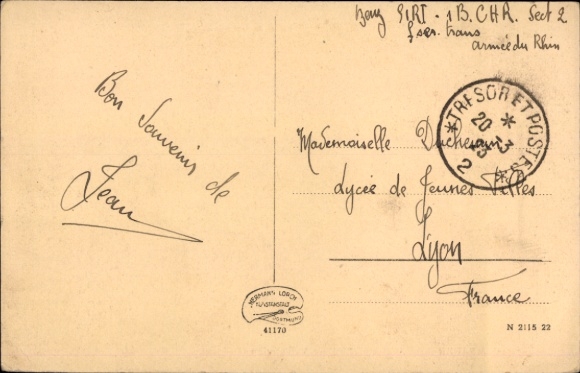 51RI - 1 B.C.H.R. Sect 2
ser. trans
armée du Rhin
Bon Souvenir de
Jean
*TRESOR ET POSTES*
20 - 3
23
2
Mademoiselle
Lycée de Jeunes Filles
Lyon
France
HERMANN LORCH
KUNSTANSTALT
DORTMUND
41170
N 2115 22